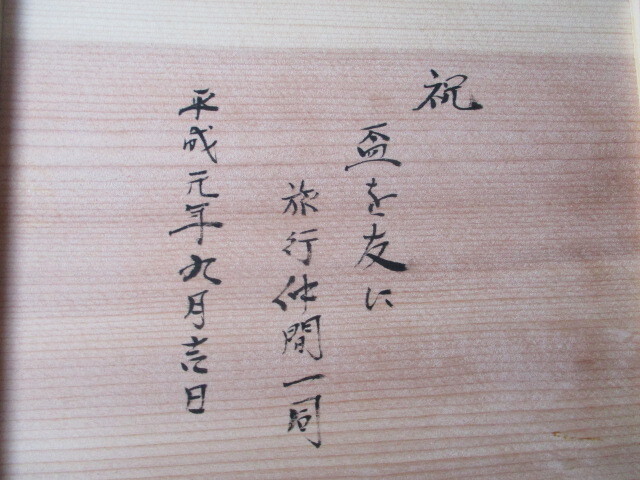 祝
盃を友に
旅行仲間一同
平成元年九月吉日